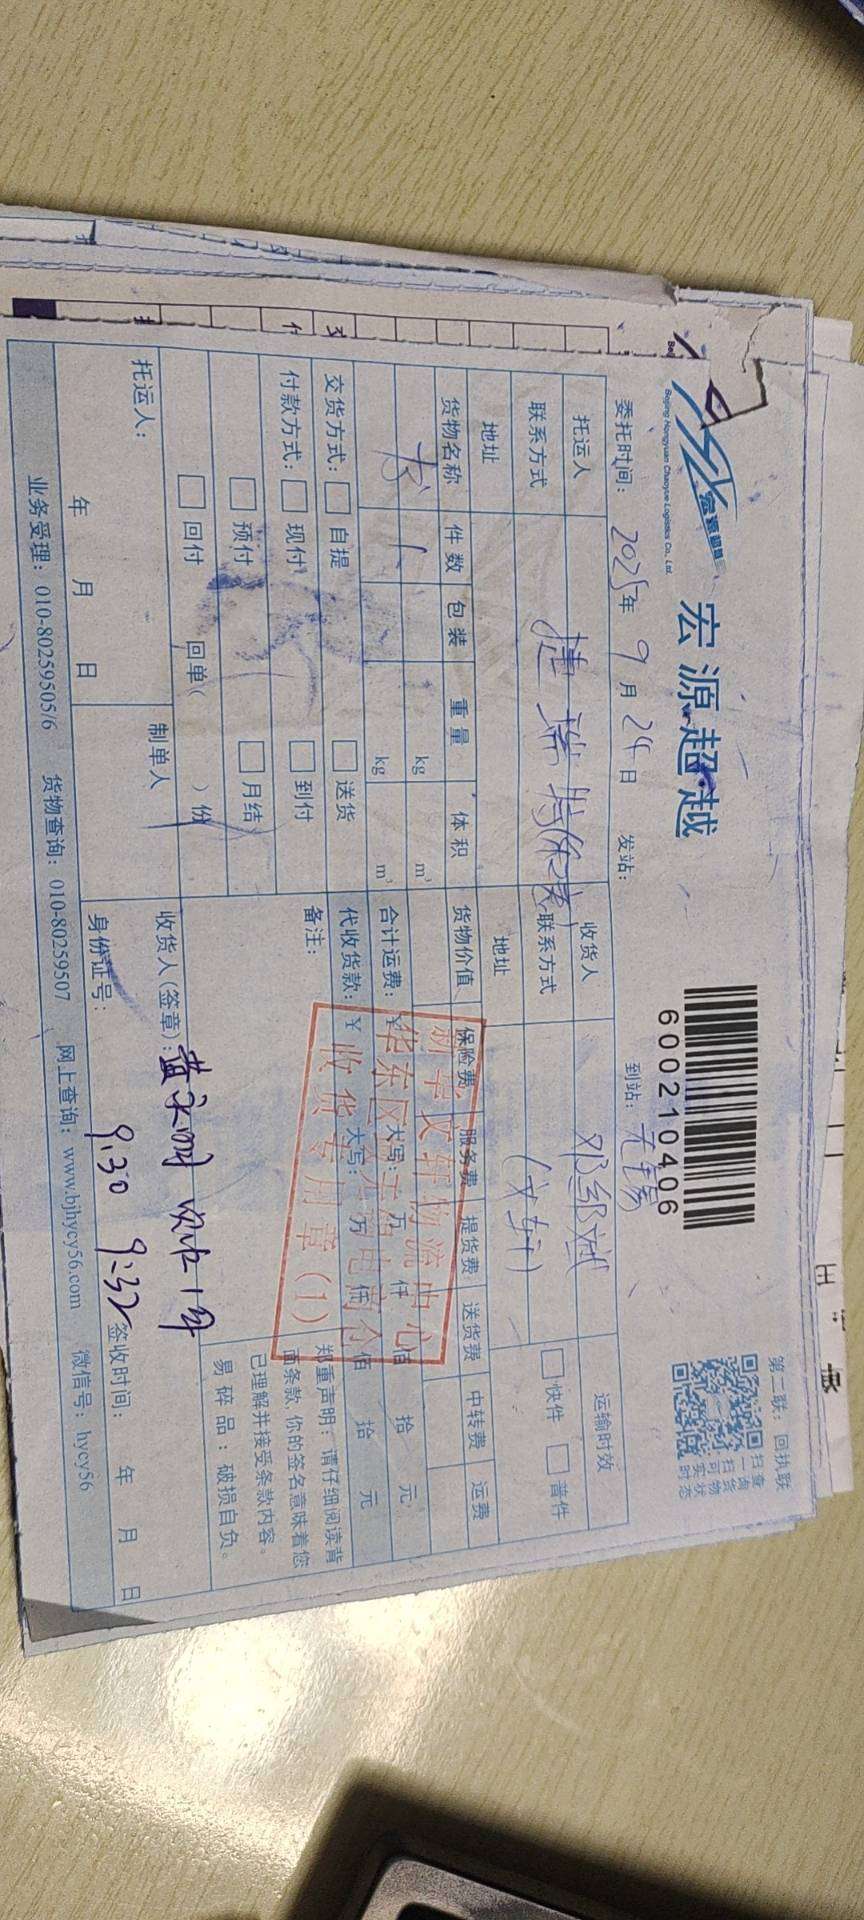 宏源超越
Beijing Hongyuan Chaoyue Logistics Co., Ltd.
宏源超越
600210406
第二联：回执联
扫一扫
查询货物
可实时
状态
委托时间：2025年9月24日
发站：
到站：无锡
托运人
收货人
邓绍斌
运输时效
联系方式
捷瑞特
联系方式
(文轩)
快件
普件
地址
地址
货物名称
件数
包装
重量
体积
货物价值
保险费
服务费
提货费
送货费
中转费
运费
书
1
kg
m³
kg
m³
合计运费：¥
大写：
万
仟
佰
拾
元
交货方式：
自提
送货
代收货款：¥
大写：
万
仟
佰
拾
元
付款方式：
现付
到付
备注：
预付
月结
回付
回单(
)份
新华文轩物流中心
华东区
电商仓
收货专用章(1)
郑重声明：请仔细阅读背
面条款，你的签名意味着您
已理解并接受条款内容。
易碎品：破损自负。
托运人：
年
月
日
制单人
收货人(签章)：
身份证号：
9:30
9:32
签收时间：
年
月
日
业务受理：010-80259505/6
货物查询：010-80259507
网上查询：www.bjhycy56.com
微信号：hycy56